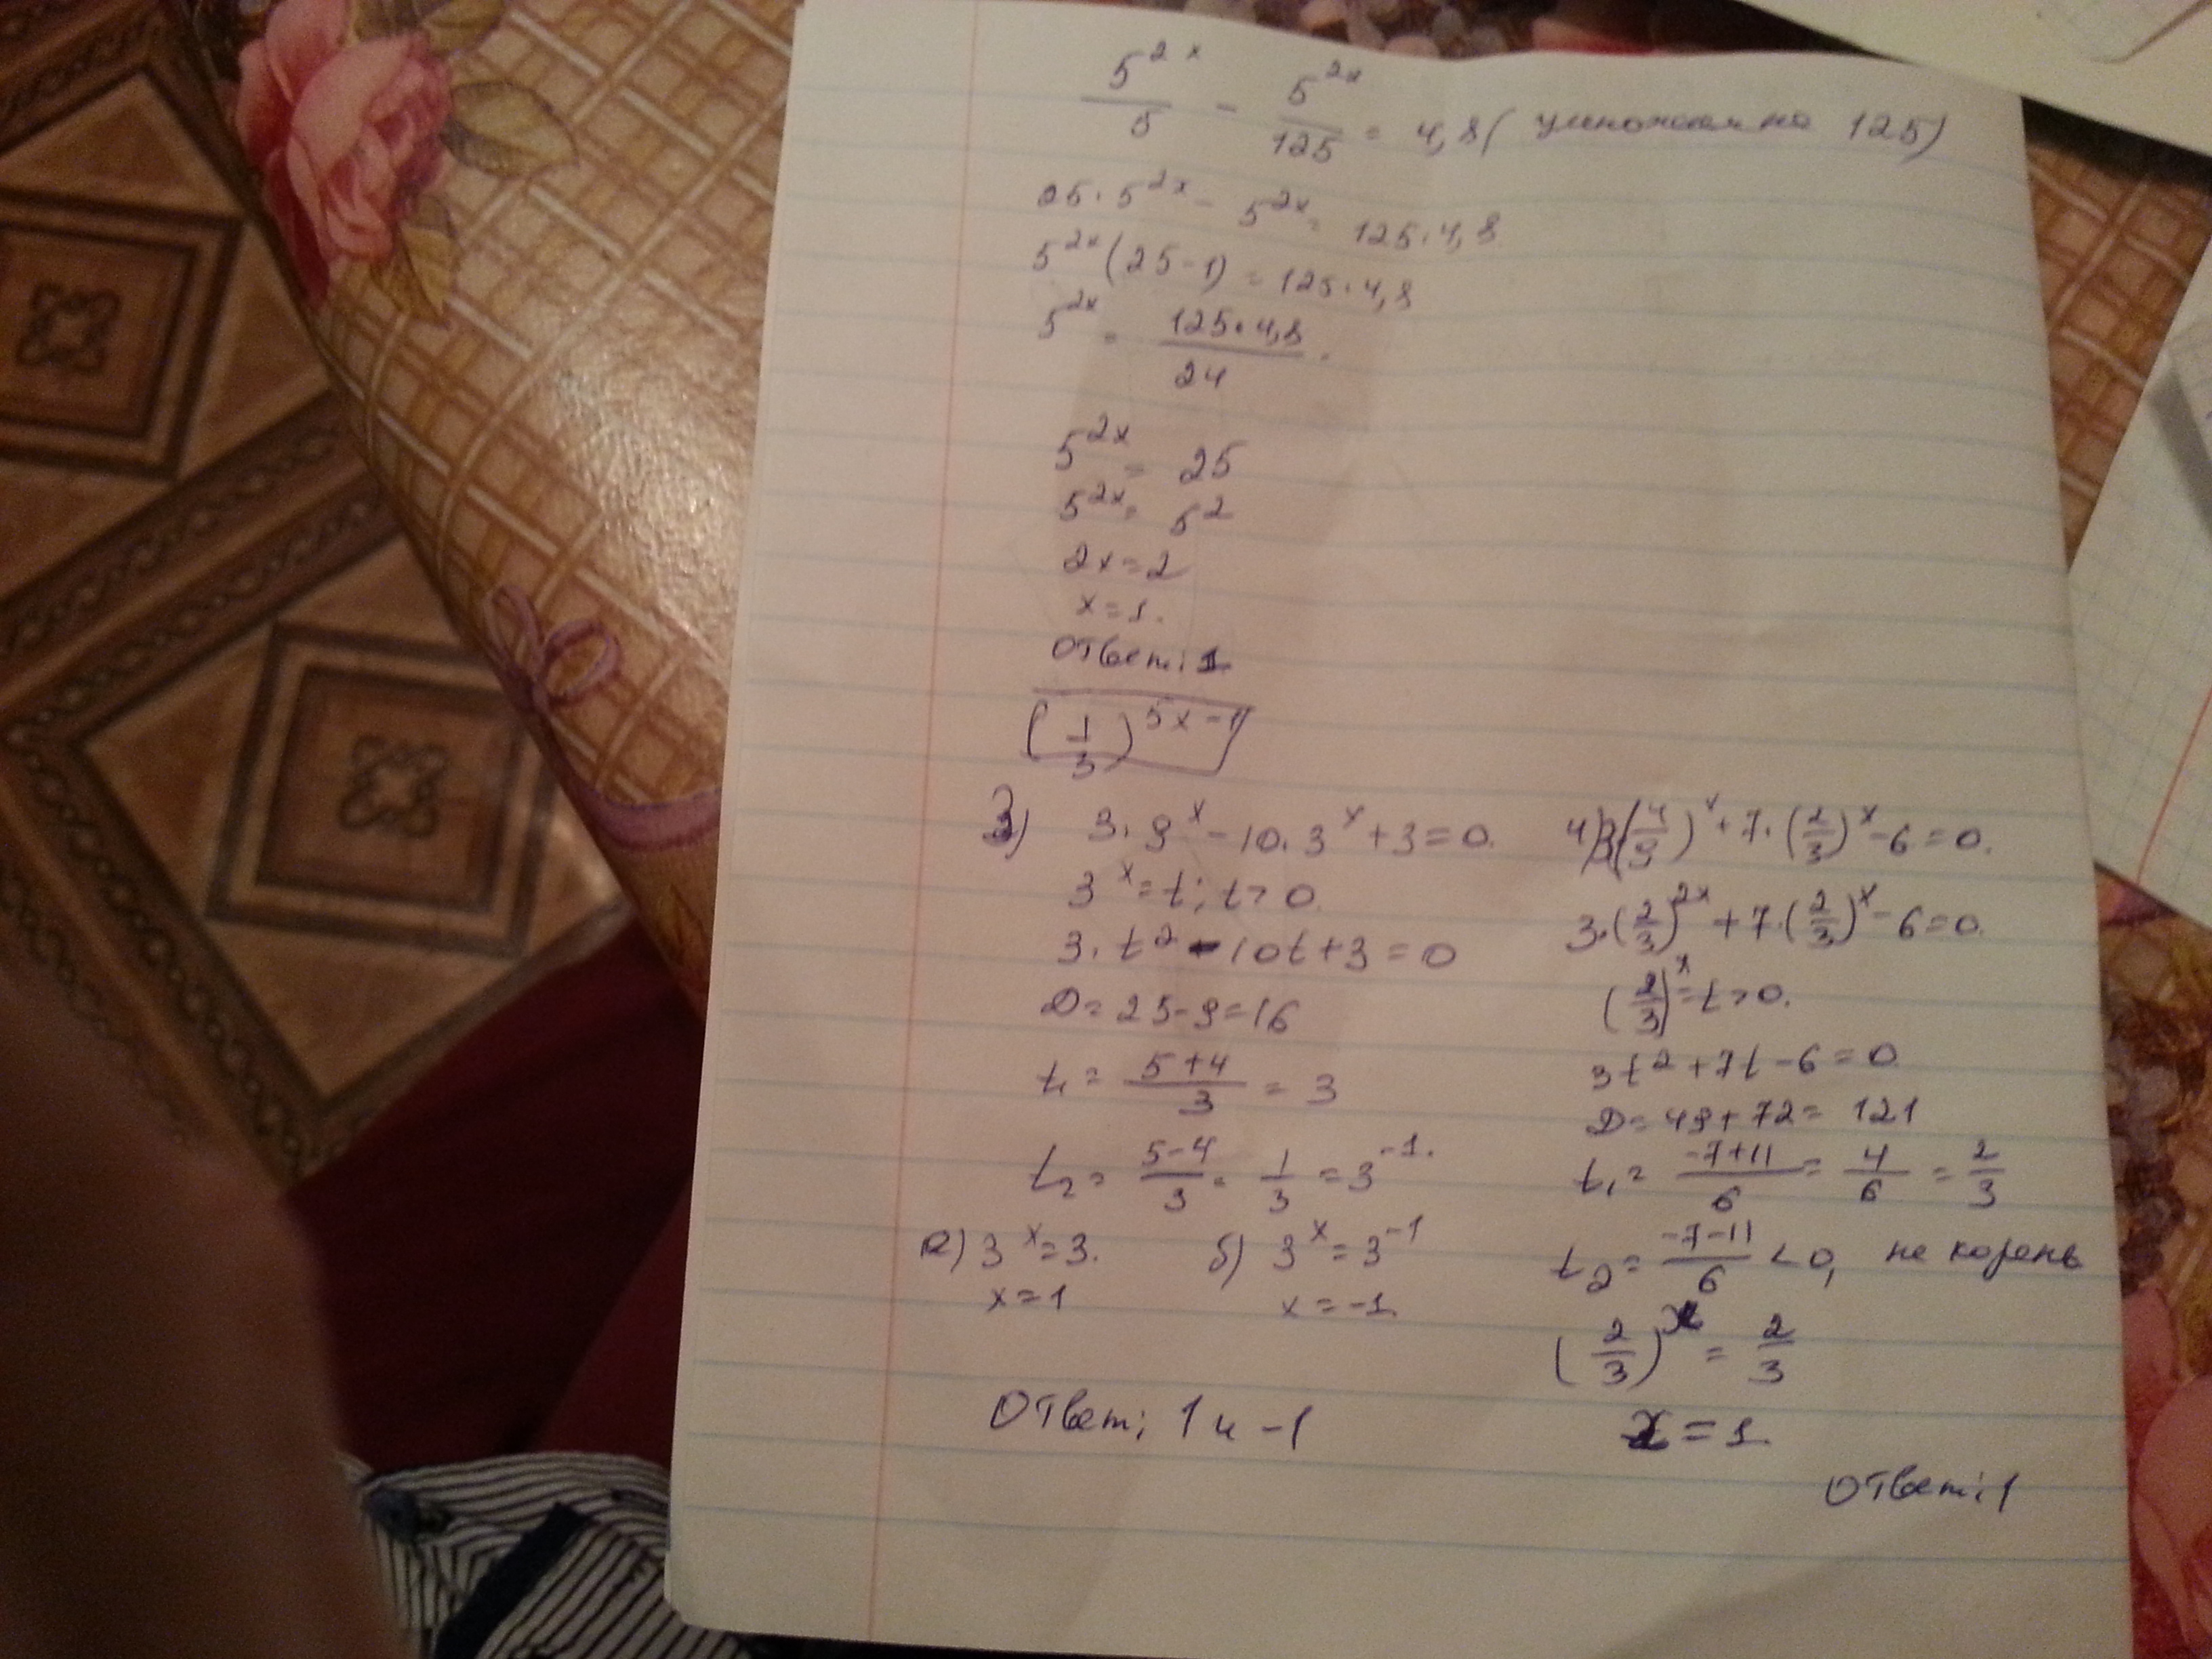 5^{2x}/5 - 5^{2x}/125 = 4,8 ( умножаем на 125)
25 · 5^{2x} - 5^{2x} = 125 · 4,8
5^{2x} (25-1) = 125 · 4,8
5^{2x} = 125 · 4,8 / 24
5^{2x} = 25
5^{2x} = 5^2
2x = 2
x = 1.
Ответ: 1
(1/3)^{5x-1}
3) 3 · 9^x - 10 · 3^x + 3 = 0.
3^x = t; t > 0.
3 · t^2 - 10t + 3 = 0
D = 25 - 9 = 16
t_1 = (5+4)/3 = 3
t_2 = (5-4)/3 = 1/3 = 3^{-1}.
а) 3^x = 3. б) 3^x = 3^{-1}
x = 1 x = -1
Ответ: 1 и -1
4) 3(4/9)^x + 7 · (2/3)^x - 6 = 0.
3 · (2/3)^{2x} + 7 · (2/3)^x - 6 = 0.
(2/3)^x = t > 0.
3t^2 + 7t - 6 = 0
D = 49 + 72 = 121
t_1 = (-7+11)/6 = 4/6 = 2/3
t_2 = (-7-11)/6 < 0, не корень
(2/3)^x = 2/3
x = 1
Ответ: 1